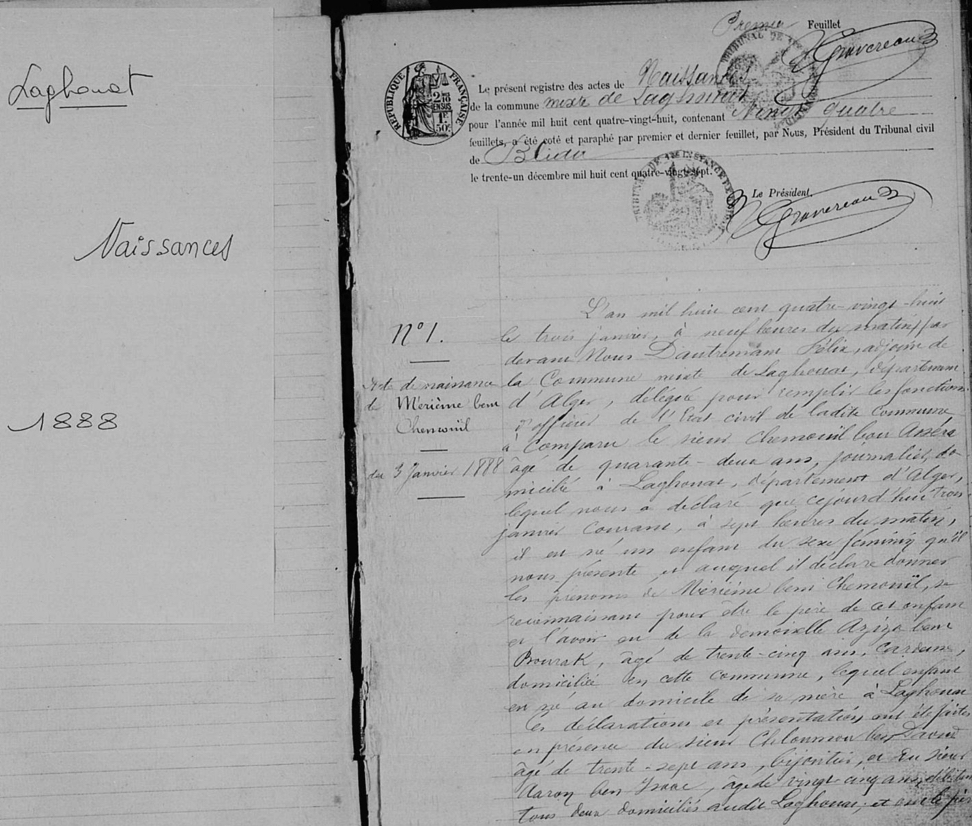 Laghouat
Naissances
1888
Premier Feuillet
Gravereau
RÉPUBLIQUE FRANÇAISE
Le présent registre des actes de Naissances
de la commune mixte de Laghouat
pour l'année mil huit cent quatre-vingt-huit, contenant Vingt quatre
feuillets, a été coté et paraphé par premier et dernier feuillet, par Nous, Président du Tribunal civil
de Blida
le trente-un décembre mil huit cent quatre-vingt-sept.
Le Président,
Gravereau
N° 1.
Acte de naissance
de Merième bent
Chemouil
du 3 Janvier 1888
L'an mil huit cent quatre-vingt-huit
le trois janvier, à neuf heures du matin, par
devant Nous Dautremant Félix, adjoint de
la Commune mixte de Laghouat, département
d'Alger, délégué pour remplir les fonctions
d'officier de l'Etat civil de ladite Commune
à Comparu le sieur Chemouil ben
âgé de quarante-deux ans, journalier, do
micilié à Laghouat, département d'Alger,
lequel nous a déclaré que cejourd'hui trois
janvier courant, à sept heures du matin,
il est né un enfant du sexe féminin qu'il
nous présente, et auquel il déclare donner
les prénoms de Merième bent Chemouïl, se
reconnaissant pour être le père de cet enfant
et l'avoir eu de la demoiselle Aziza bent
Bourak, âgé de trente-cinq ans,
domiciliée en cette commune, lequel enfant
est né au domicile de sa mère à Laghouat
Les déclarations et présentation ont été faites
en présence du sieur Chloumou ben David
âgé de trente-sept ans, bijoutier, et du sieur
Aaron ben Isaac, âgé de vingt cinq ans,
tous deux domiciliés audit Laghouat; et ont le père